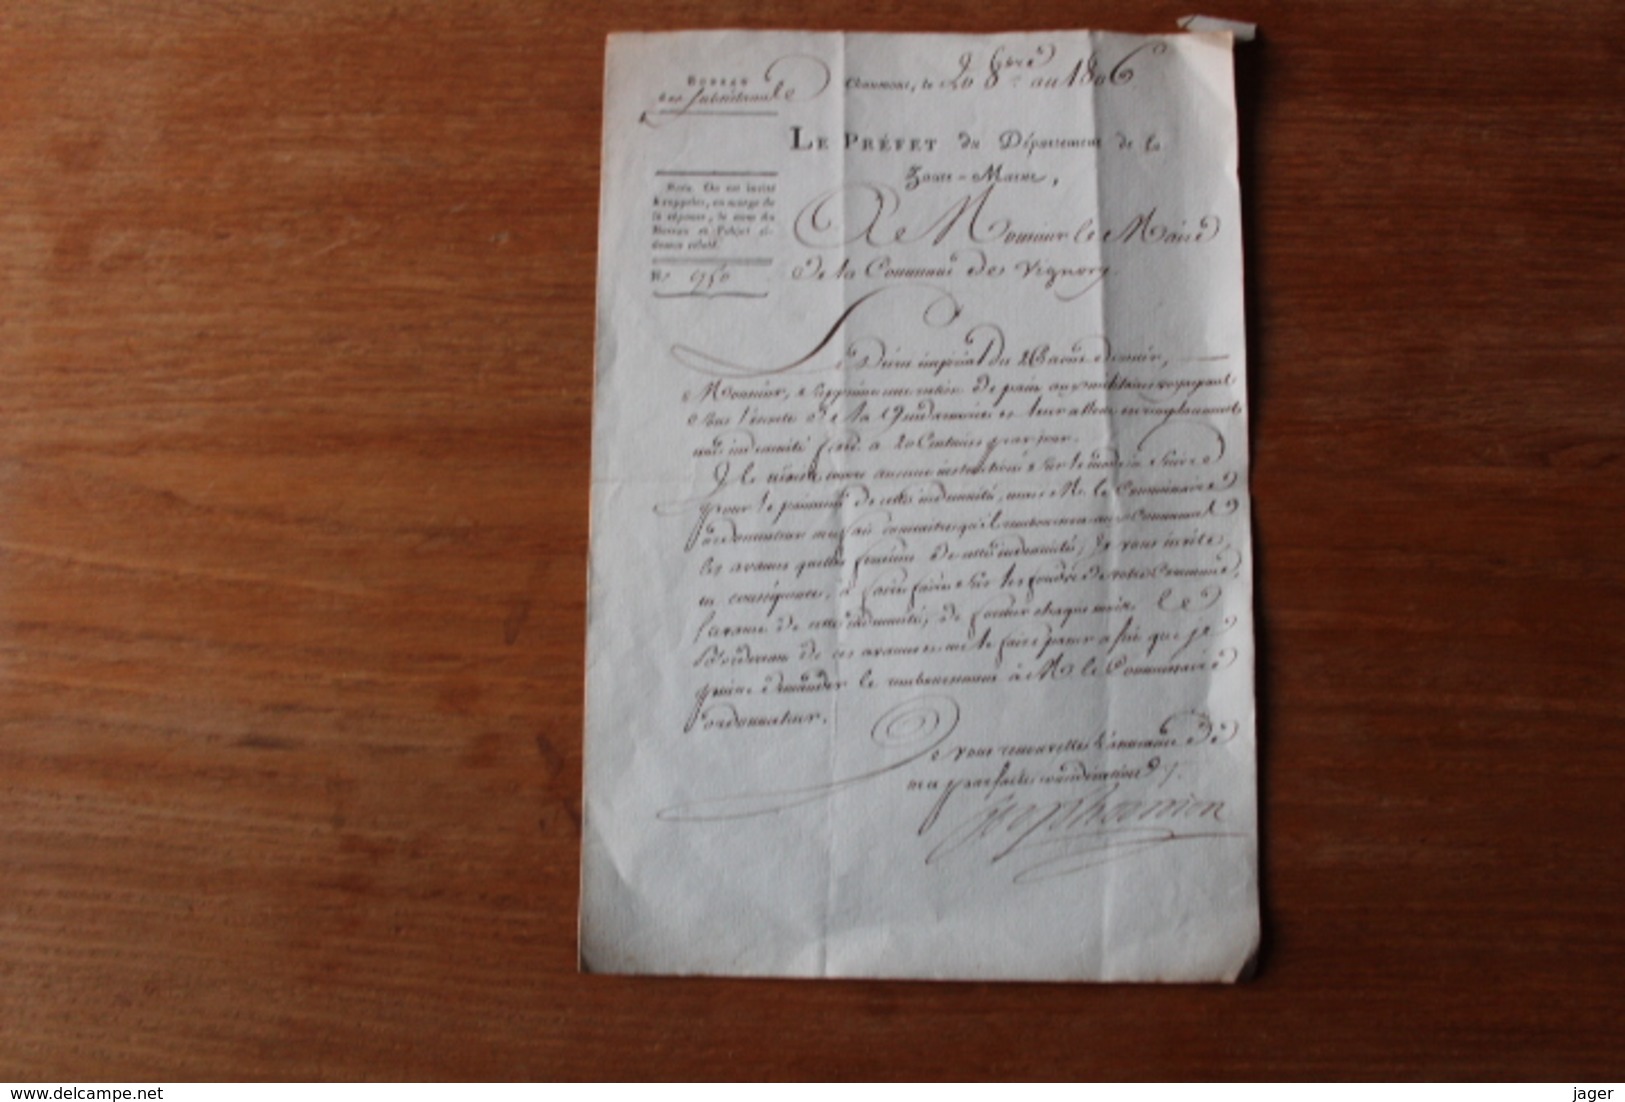 BUREAU
des Subsistances
Chaumont, le 20 9bre an 1806
LE PRÉFET du Département de la
Haute-Marne,
A Monsieur le Maire
de la Commune de Vignory
Nota. On est invité
à rappeler, en marge de
la réponse, le nom du
Bureau et l'objet ci-
dessous relaté.
N.º 950
Le Décret impérial du 26 août dernier,
Monsieur, supprime une ration de pain aux militaires voyageant
sous l'escorte de la Gendarmerie et leur alloue en remplacement
une indemnité fixée à 20 Centimes par jour.
Il n'existe encore aucune instruction sur le mode à suivre
pour le paiement de cette indemnité, mais M. le Commissaire
ordonnateur me fait connaitre qu'il remboursera aux Communes
les avances qu'elles feraient de cette indemnité, Je vous invite,
en conséquence, à faire faire sur les fonds de votre Commune,
l'avance de cette indemnité, de former chaque mois le
Bordereau de ces avances et me le faire passer afin que je
puisse demander le remboursement à M. le Commissaire
ordonnateur.
Je vous renouvelle l'assurance de
ma parfaite considération.
jager
https://www.delcampe.net